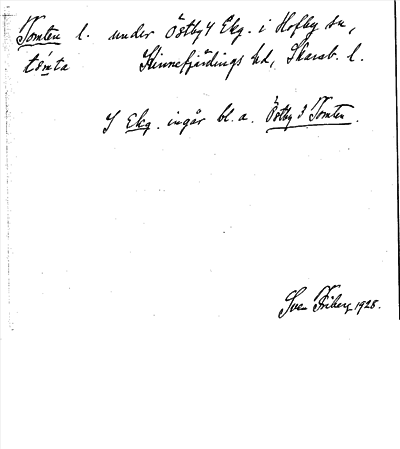 Tomten l. under Östby 4 Ekg. i Hofby sn,
tómta Kinnefjärdings hd, Skarab. l.
I Ekg. ingår bl. a. Östby 3 Tomten.
Sven Friberg 1928.